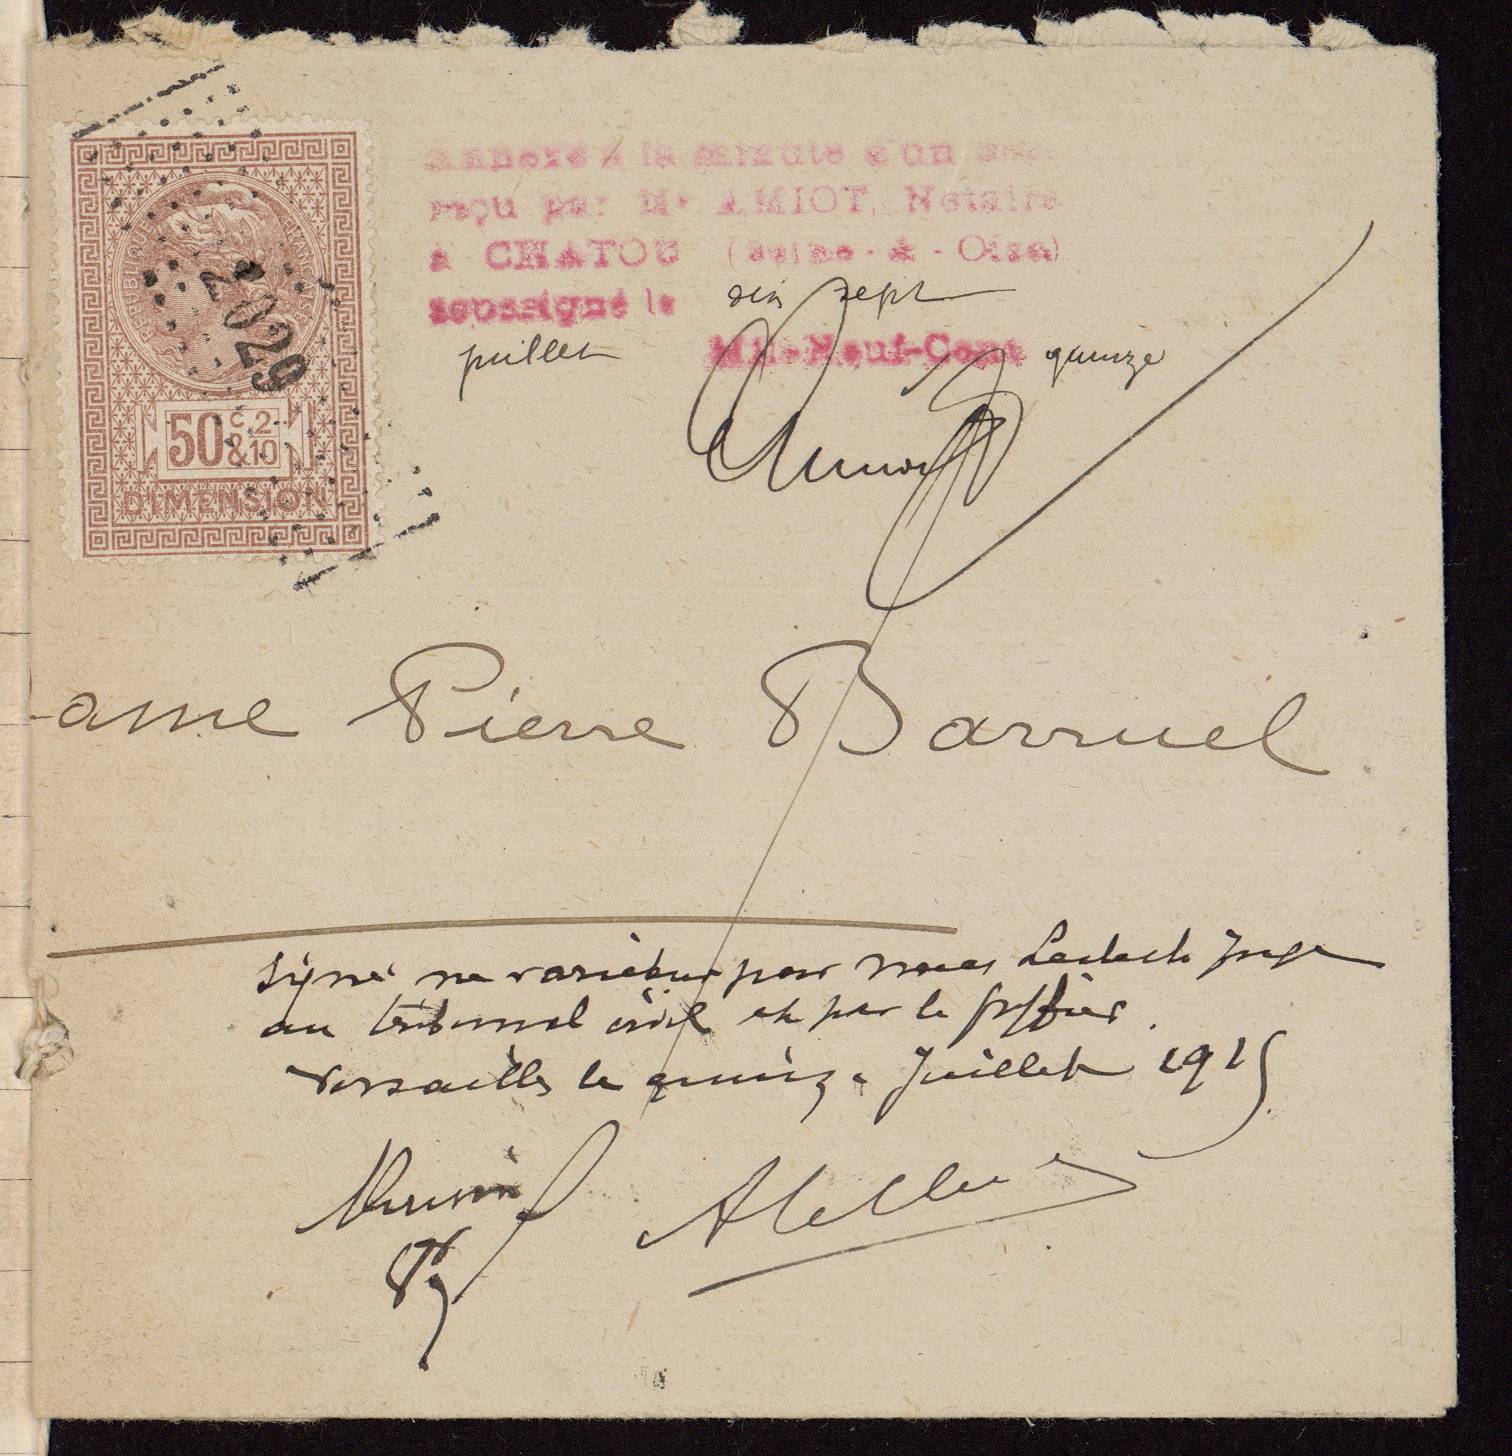 RÉPUBLIQUE FRANÇAISE
2029
50 c 2
& 10
DIMENSION
Annexé à la minute d'un
reçu par Me AMIOT, Notaire
à CHATOU (Seine-&-Oise)
soussigné le dix sept
juillet Mil-Neuf-Cent quinze
Amiot
ame Pierre Barruel
Signé ne varietur par nous Juge
au tribunal civil et par le greffier.
Versailles le quinze Juillet 1915